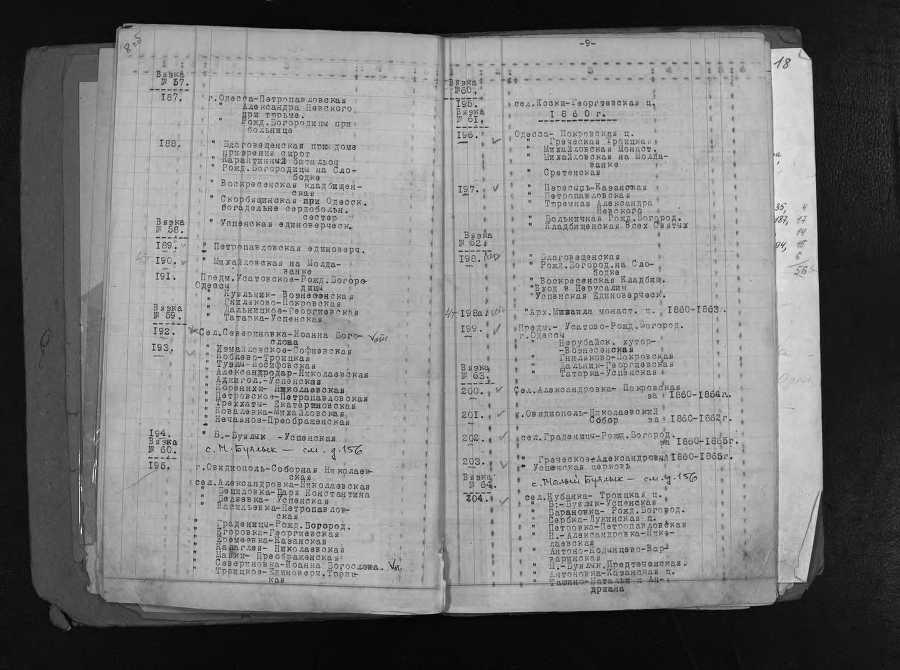 Вязка
№ 57.
187. г.Одесса-Петропавловская
Александра Невского
при тюрьме.
" Рожд.Богородицы при
больнице
188. " Благовещенская при доме
призрения сирот
" Карантинный
" Рожд.Богородицы на Сло-
бодке
" Воскресенская кладбищен-
ская
" Скорбященская при Одесск.
богадельне сердобольн.
сестер
" Успенская единоверческ.
Вязка
№ 58.
189. " Петропавловская единоверч.
190. " Михайловская на Молда-
ванке
191. Предм.Усатовское-Рожд.Богоро-
Одессы дицы
" Куяльник- Вознесенская
" Гниляково-Покровская
" Дальницкое-Георгиевская
" Татарка-Успенская
Вязка
№ 59.
192. Сел.Севериновка-Иоанна Бого-
слова
193. " Измайловское-Софиевская
" Коблево-Троицкая
" Тузлы-Иосифовская
" Александродар-Николаевская
" Аджигол-Успенская
" Коренихи- Николаевская
" Петровское-Петропавловская
" Троххаты- Екатериновская
" Ковалевка-Михайловская
" Нечаяное-Преображенская
194. " Б.-Буялык -Успенская
Вязка
№ 60. с. М. Буялык — см. д. 156
195. г.Овидиополь-Соборная Николаев-
ская
сел.Александровка-Николаевская
" Беляевка- Успенская
" Васильевка-Петропавлов-
ская
" Граденицы-Рожд.Богород.
" Егоровка-Георгиевская
" Еремеевка-Казанская
" Кашаглея- Николаевская
" Маяки- Преображенская
" Севериновка-Иоанна Богослова.
" Троицкое-Единоверч.Троиц-
кая
-9-
Вязка
№ 60.
195. сел.Коски-Георгиевская ц.
Вязка
№ 61. 1860г.
196. Одесса- Покровская ц.
" Греческая Троицкая
" Михайловская Монаст.
" Михайловская на Молда-
ванке
" Сретенская
197. " Пересыпь-Казанская
" Петропавловская
" Тюремная Александра
Невского
" Больничная Рожд.Богород.
" Кладбищенская Всех Святых
Вязка
№ 62.
198. " Благовещенская
" Рожд.Богород.на Сло-
бодке
" Воскресенская Кладбищ.
" Вход в Иерусалим
" Успенская Единоверческ.
198а. "Арх.Михаила монаст. ц. 1860-1863г.
199. Предм.- Усатово-Рожд.Богород.
г.Одессы
" Нерубайск. хутор-
-Вознесенская
" Гниляково-Покровская
" Дальник-Георгиевская
" Татарка-Успенская
Вязка
№ 63.
200. Сел.Александровка- Покровская
за 1860-1864г.
201. г.Овидиополь-Николаевский
Собор за 1860-1862г.
202. сел.Граденицы-Рожд.Богород.
за 1860-1865г.
203. " Греческое-Александровка 1860-1865г.
" Успенская церковь
Вязка
№ 64. с. Малый Буялык — см. д. 156
204. сел.Кубанка- Троицкая ц.
" Б.-Буялык-Успенская
" Барановка- Рожд.Богород.
" Сербка-Лукинская ц.
" Петровка-Петропавловская
" Н.-Александровка-Нико-
лаевская
" Антоно-Кодинцево-Вар-
варинская
" М.-Буялык.Предтеченская.
" Антоновка-Казанская ц.
" Ташино-Натальи и Ан-
дриана
18